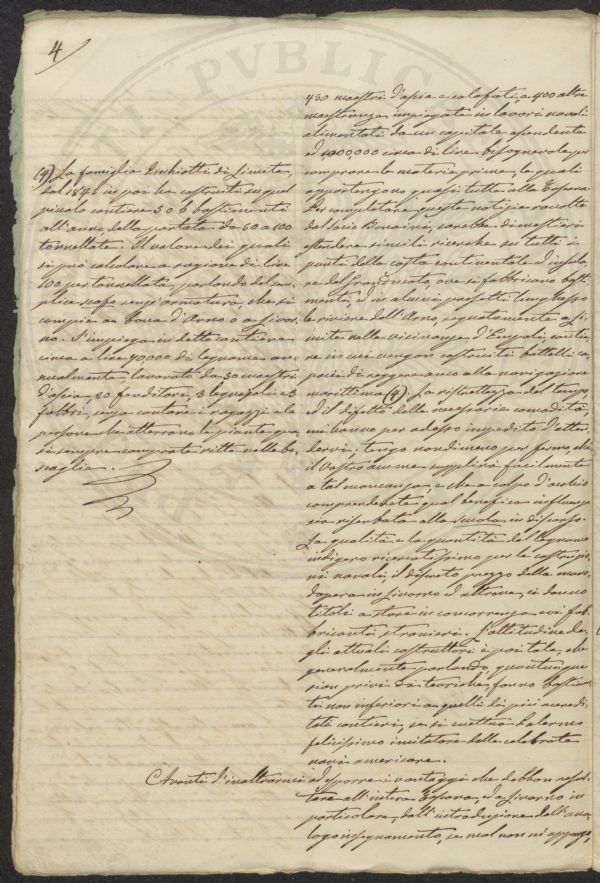 4
(4) La famiglia Dechiotti di Limite,
dal 1845 in poi ha costruito in quel
piccolo cantiere 5 o 6 bastimenti
all'anno, della portata da 50 a 100
tonnellate. Il valore dei quali
si può calcolare a ragione di lire
100 per tonnellata, parlando del sem-
plice scafo senz'armatura, che si
compie a Bocca d'Arno o a Livor-
no. S'impiega in detto cantiere
circa a lire 90000 di legname an-
nualmente, lavorato da 30 maestri
d'ascia, 20 fenditori, 3 legnajoli e 3
fabbri, senza contare i ragazzi e le
persone che atterrano le piante, qua-
si sempre comprate ritte nelle bo-
scaglie.
450 maestri d'ascia e calafati, e 400 altre
maestranze impiegate in lavori navali
alimentati da un capitale ascendente
a 1,000,000 circa di lire bisognevole per
comprare le materie prime, le quali
appartengono quasi tutte alla Toscana.
Per completare queste notizie raccolte
dal Socio Bonaini, sarebbe di mestieri
estendere simili ricerche su tutti i
punti della costa continentale e insula-
re del Granducato, ove si fabbricano basti-
menti, ed in alcuni paesetti lunghesso
le riviere dell'Arno, segnatamente a Li-
mite nelle vicinanze d'Empoli, cantie-
re in cui vengon costruiti battelli ca-
paci di reggere anco alla navigazione
marittima (4). La ristrettezza del tempo
ed il difetto delle necessarie comodità
mi hanno per adesso impedito d'atten-
dervi; tengo nondimeno per fermo, che
il Vostro acume supplirà facilmente
a tal mancanza, e che a colpo d'occhio
comprenderete qual benefica influenza
sia riserbata alla scuola in discorso.
La qualità e la quantità del legname
indigeno ricercatissimo per le costruzio-
ni navali, il discreto prezzo della mano
d'opera in Livorno ed altrove, ci danno
titoli a stare in concorrenza coi fab-
bricanti stranieri. L'attitudine de-
gli attuali costruttori è poi tale, che
generalmente parlando, quantunque
sian privi di teoriche, fanno bastimen-
ti non inferiori a quelli dei più accredi-
tati cantieri, e si
felicissimo imitatore delle celebrate
navi americane.
Avanti d'inoltrarmi ad esporre i vantaggi che debbon resul-
tare all'intera Toscana e a Livorno in
particolare, dall'introduzione dell'ana-
logo insegnamento, se mal non mi appongo,